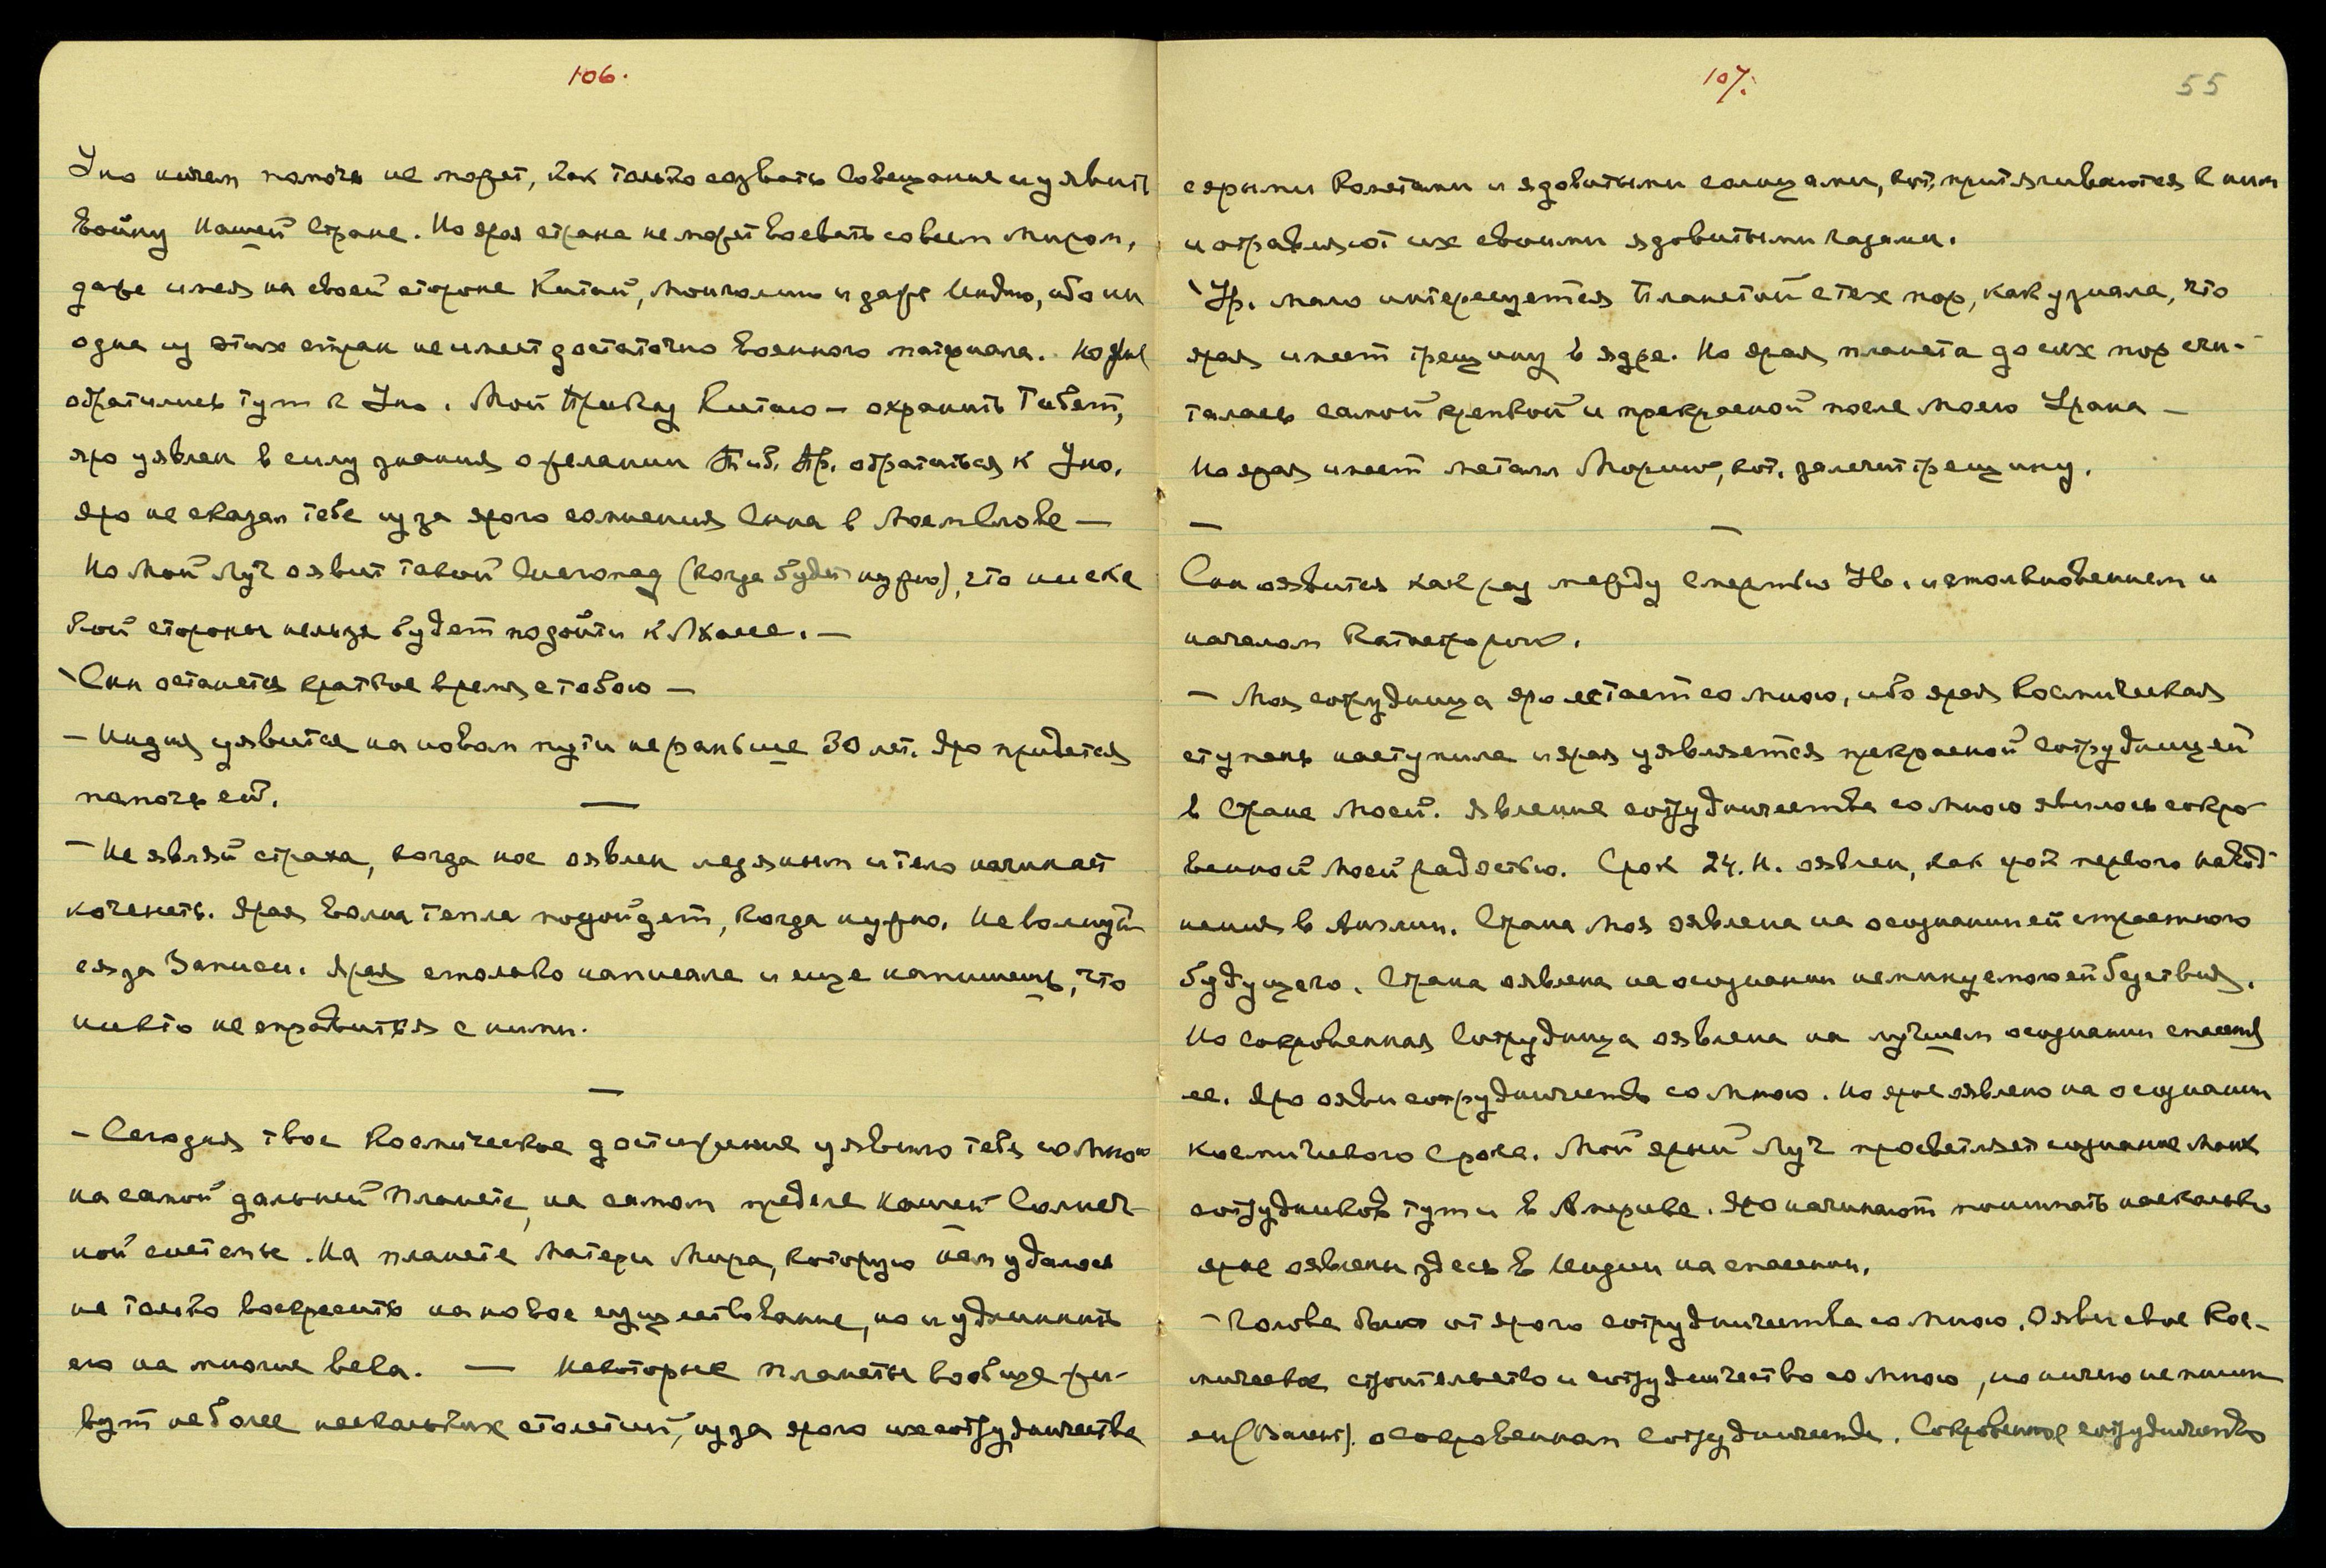 106.
Уно ничем помочь не может, как только созвать Совещание и уявить
войну Нашей Стране. Но ярая страна не может воевать со всем Миром,
даже имея на своей стороне Китай, Монголию и даже Индию, ибо ни
одна из этих стран не имеет достаточно военного матерьяла. Но ярые
обратились тут к Уно. Мой Приказ Китаю — охранить Тибет,
яро уявлен в силу знания о желании Тиб. Пр. обратиться к Уно.
Яро не сказал тебе из за ярого сомнения Сына в Моем Слове —
Но Мой Луч оявит такой Снегопад (когда будет нужно), что ни с ка
кой стороны нельзя будет подойти к Лхасе. —
Сын останется краткое время с тобою —
— Индия уявится на новом пути не раньше 30 лет. Яро придется
помочь ей.
— Не являй страха, когда нос оявлен ледяным и тело начинает
коченеть. Ярая волна тепла подойдет, когда нужно. Не волнуй-
ся за Записи. Ярая столько написала и еще напишешь, что
никто не справится с ними.
— Сегодня твое Космическое достижение уявило тебя со Мною
на самой дальней Планете, на самом пределе Нашей Солнеч-
ной системы. На планете Матери Мира, которую Нам удалось
не только воскресить на новое существование, но и удлинить
его на многие века. — Некоторые Планеты вообще жи-
вут не более нескольких столетий, из за ярого их сотрудничества
107.
55
с ярыми Кометами и ядовитыми солнцами, кот. притягиваются к ним
и отравляют их своими ядовитыми газами.
Ур. мало интересуется Планетой с тех пор, как узнала, что
ярая имеет трещину в ядре. Но ярая планета до сих пор счи-
талась самой крепкой и прекрасной после Моего Урана —
Но ярая имеет металл Мориум, кот. залечит трещину.
Сын оявится как раз между смертью Ув. и столкновением и
началом Катастрофы.
— Моя сотрудница яро летает со Мною, ибо ярая Космическая
ступень наступила и ярая уявляется прекрасной Сотрудницей
в Стране Моей. Явление сотрудничества со Мною явилось сокро-
венной Моей радостью. Срок 24. Н. оявлен, как срок первого навод-
нения в Англии. Страна Моя оявлена на осознании ей страшного
будущего. Страна оявлена на осознании неминуемого ей бедствия.
Но сокровенная Сотрудница оявлена на лучшем осознании спасения
ее. Яро ояви сотрудничество со Мною. Но ярые оявлено на осознании
Космического Срока. Мой ярый Луч просветляет сознание Моих
сотрудников тут и в Америке. Яро начинают понимать насколько
ярые оявлены здесь в Индии на спасении.
— Голова от ярого сотрудничества со Мною. Ояви свое Кос-
мическое строительство и сотрудничество со Мною, но ничего не пиши
о сокровенном сотрудничестве. Сокровенное сотрудничество